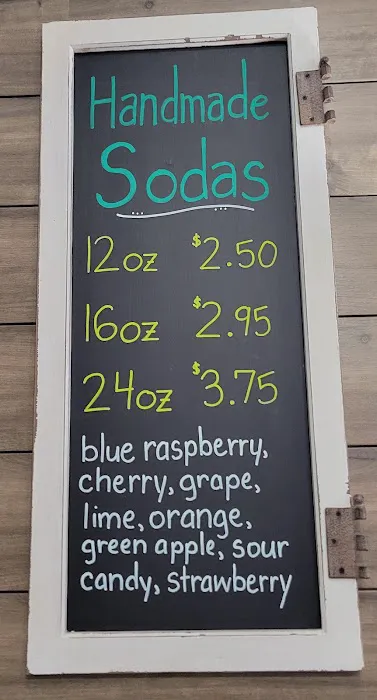 Handmade
Sodas
12oz $2.50
16oz $2.95
24oz $3.75
blue raspberry,
cherry, grape,
lime, orange,
green apple, sour
candy, strawberry